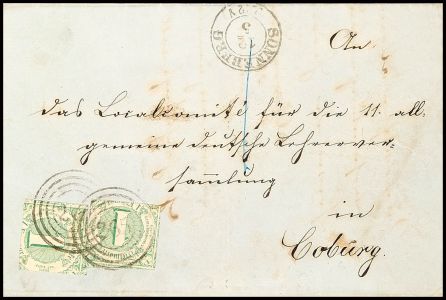 SONNEBERG
5
12
An
das Localcomité für die 11. all-
gemeine deutsche Lehrerver-
sammlung
in
Coburg.
1
1